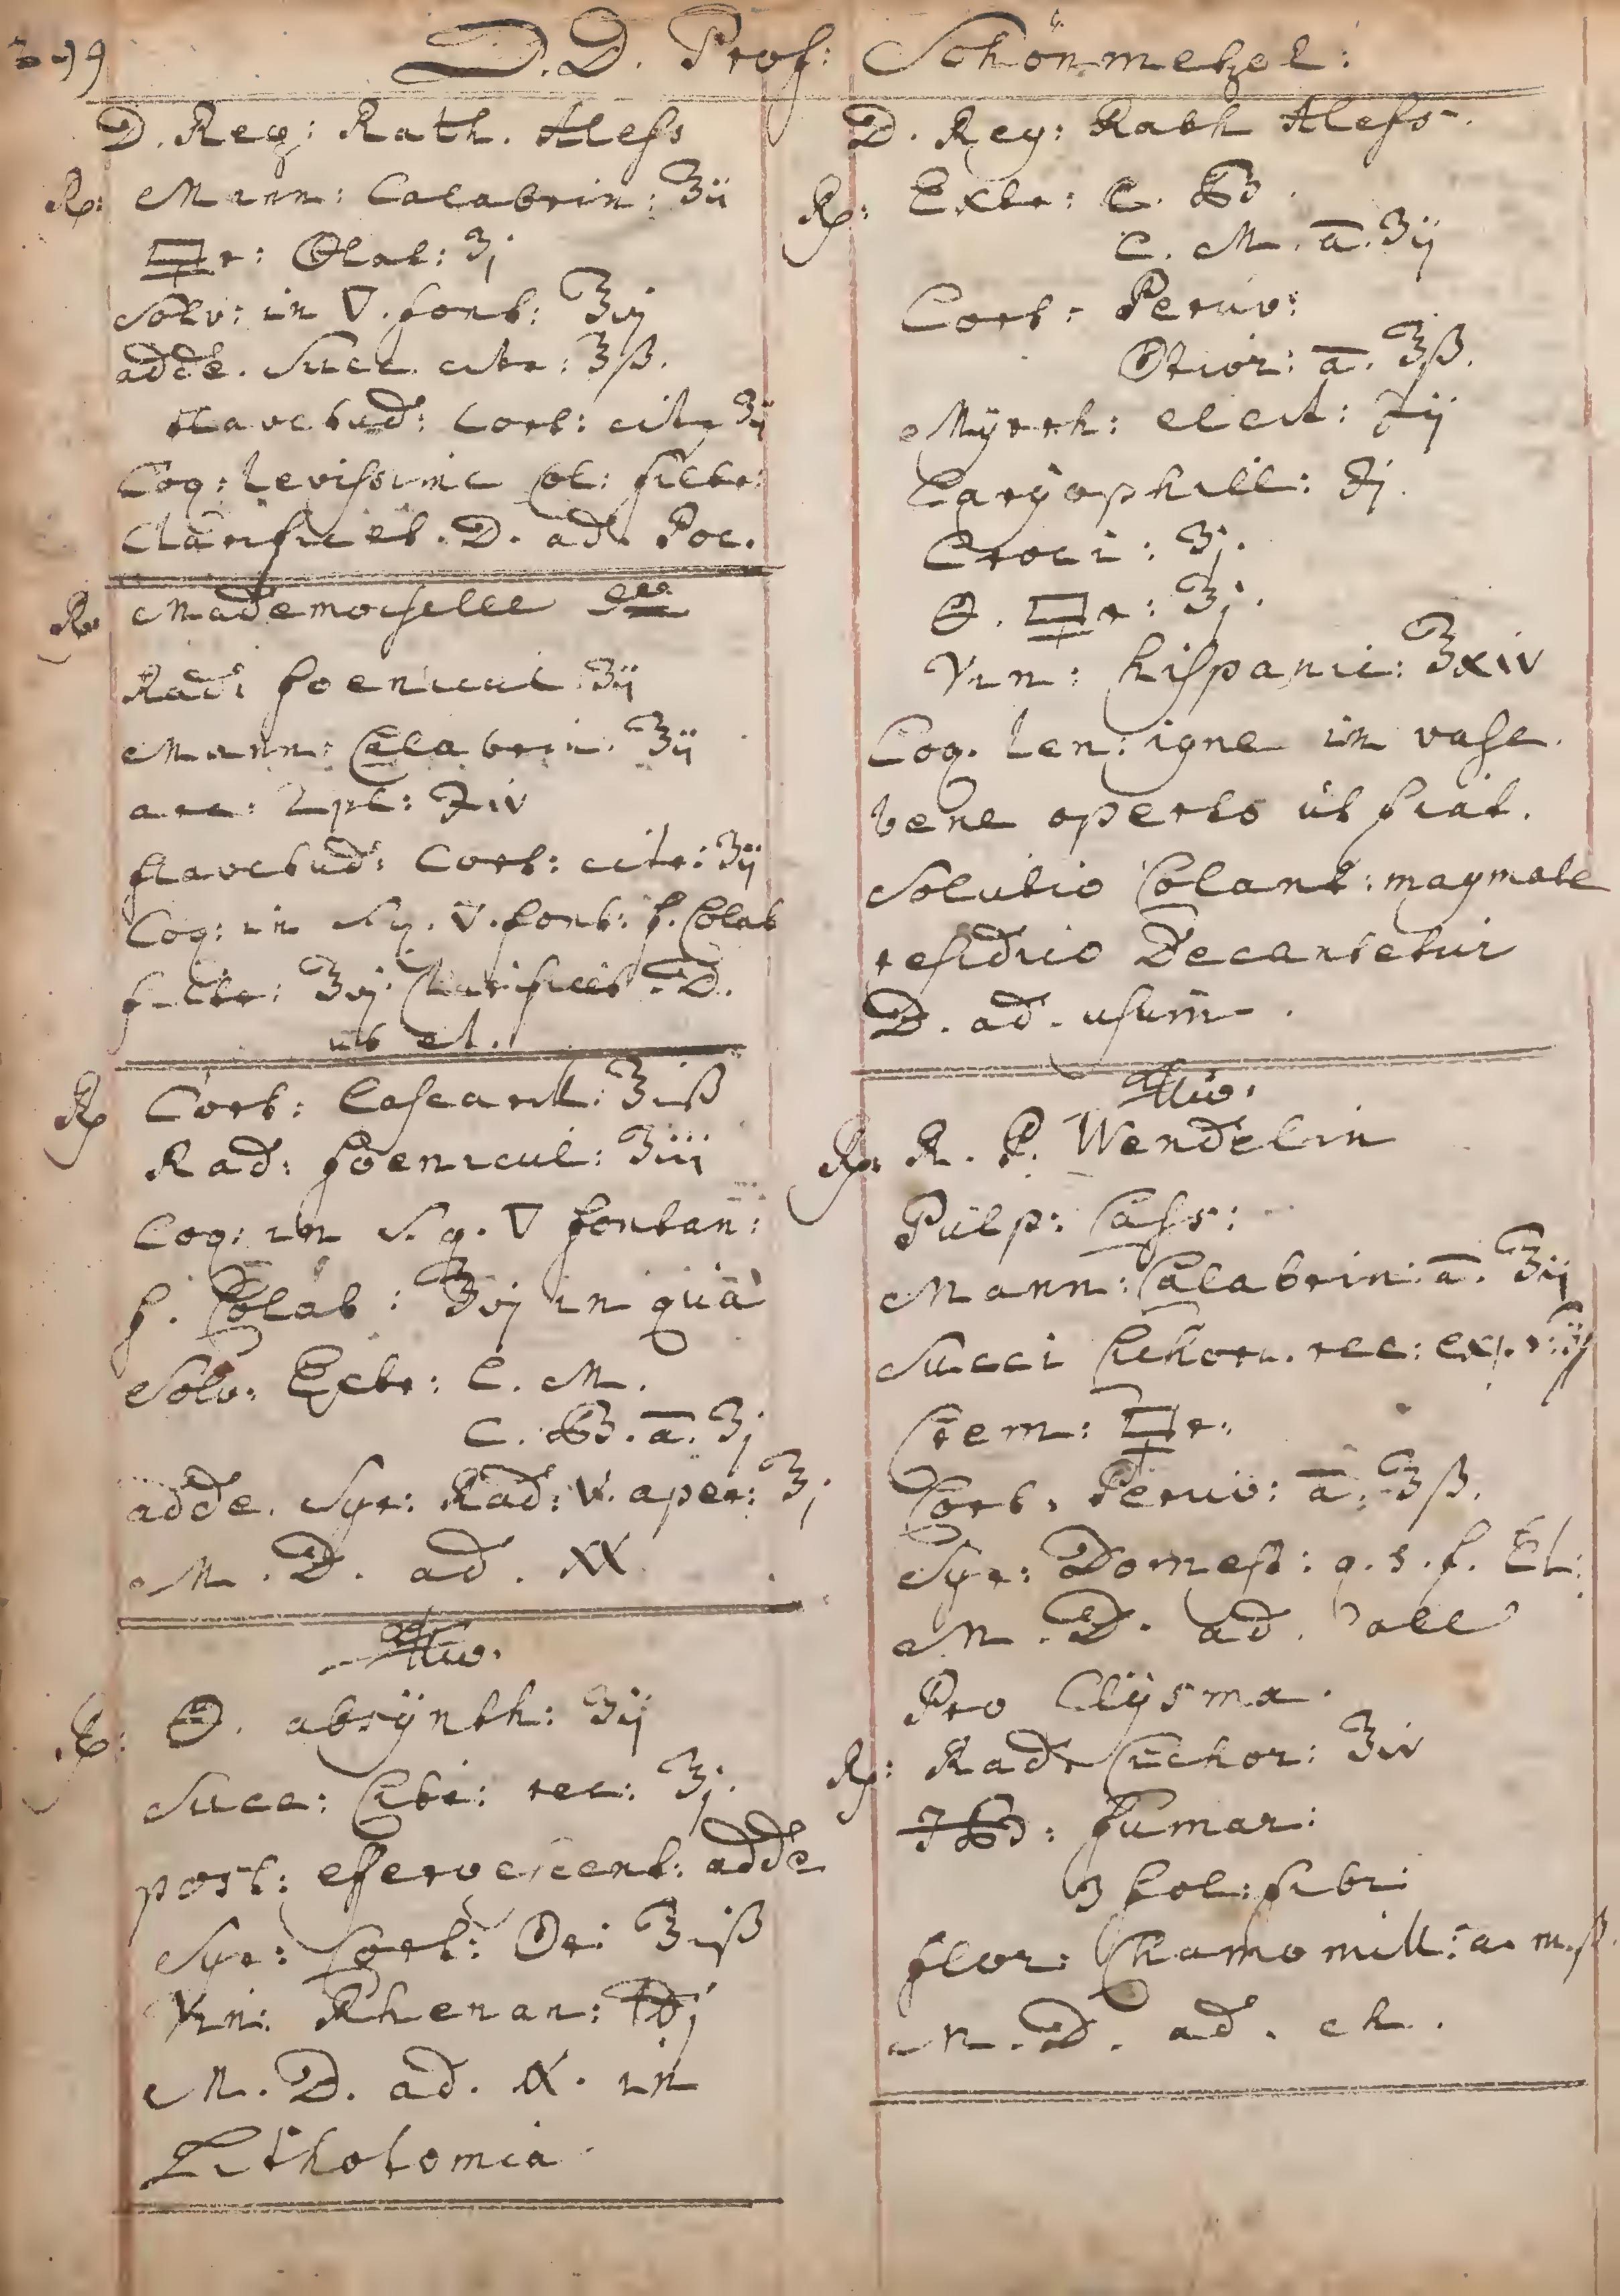 D.D. Prof: Schönmetzel:
D. Reg: Rath. Hess
R: Mann: Calabrin: ℥ii
🜿r: Θlat: ʒj
Solv: in ▽. font: ℥vj
adde. Succ. citr: ℥ß.
flavetud: Cort: citr: ʒij
Coq: levissime Col: filtr:
Clarificet. D. ad. Poc.
R. Mademoiselle
Rad: foenicul: ʒii
Mann: Calabrin. ℥ii
Coq: in S.q. ▽. font: f. Colat
filtr: ℥vj. Clarificet. D.
ut et.
R Cort: Cascarill: ʒiß
Rad: foenicul: ʒiii
Coq: in S. q. ▽ fontan:
f. Colat: ℥vj in quâ
Solv: Extr: C. M.
C. B. ā. ʒj
adde. Syr: Rad: V. aper: ℥j
M. D. ad. XX
R: Θ. absÿnth: ʒij
Succ: Citri: rec: ℥j.
post: efervescent: adde
Syr: Cort: Or: ℥iß
Vin: Rhenan: ℔j
M. D. ad. X. in
Litholomia
D. Reg: Rath Hess.
R: Extr: C. B.
C. M. ā. ʒij
Cort: Peruv:
ā. ℥ß.
Mÿrrh: elect: ℈ij
Carÿophill: ℈j.
Croci: ʒj.
Θ. 🜿r: ʒj.
Vin: hispanic: ℥xiv
Coq. len: igne in vase.
bene operto ut fiat.
Solutio Colant: magmate
residuo Decantetur
D. ad. usum.
R: R. P. Wendelin
Pulp: Cass:
Mann: Calabrin: ā. ℥ij
Succi Cichor. rec: expr:
Crem: 🜿r.
Cort: Peruv: ā: ℥ß.
Syr: Domest: q. s. f. El:
M. D. ad.
Pro Clÿsma.
R: Rad: Cichor: ℥iv
Fumar:
flor: Chamomill: ā. m.ß.
M. D. ad. ch.